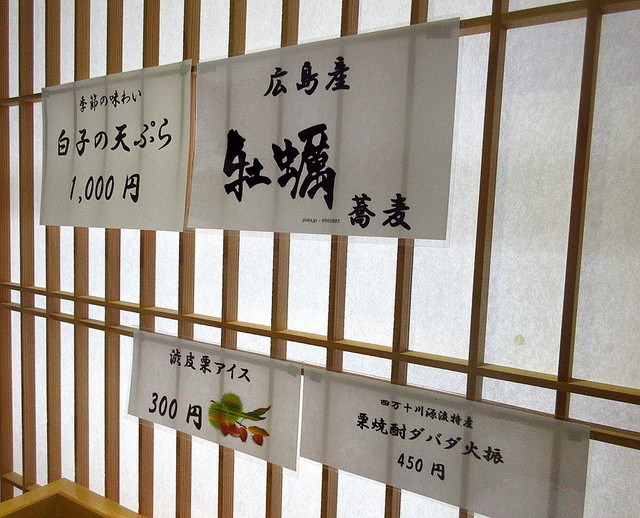 季節の味わい
白子の天ぷら
1,000円
広島産
牡蠣
蕎麦
渋皮栗アイス
300円
四万十川源流特産
栗焼酎ダバダ火振
450円